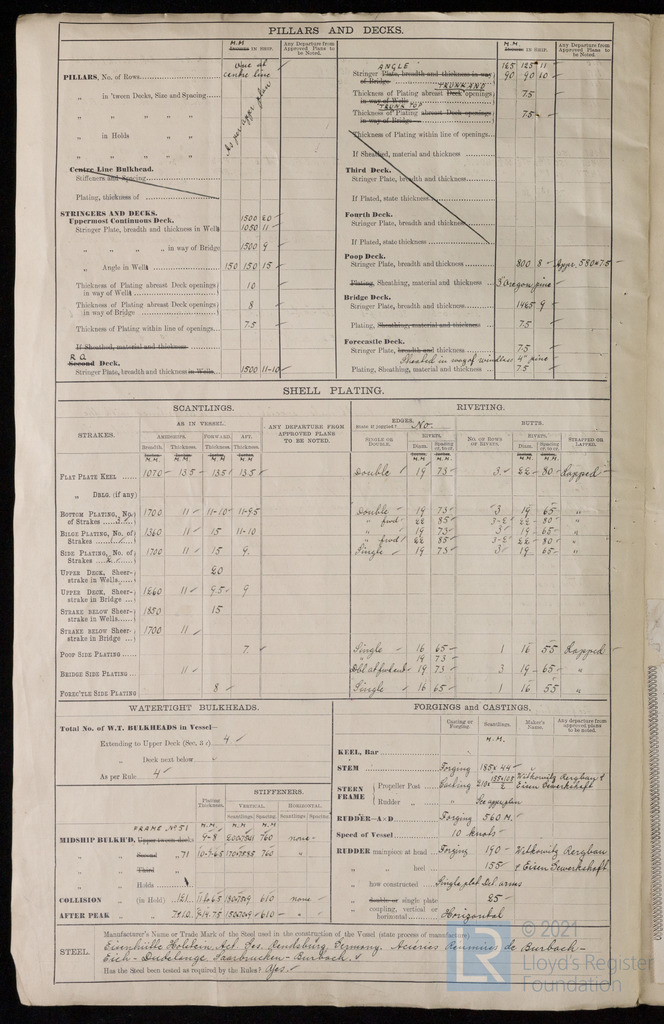 PILLARS AND DECKS.
M.M
IN SHIP.
Any Departure from Approved Plans to be Noted.
PILLARS, No. of Rows
One at centre line
„ in 'tween Decks, Size and Spacing
As per appr plan
„ „ „ „
„ in Holds „ „
„ „ „ „
Centre Line Bulkhead.
Stiffeners and Spacing
Plating, thickness of
STRINGERS AND DECKS.
Uppermost Continuous Deck.
Stringer Plate, breadth and thickness in Wells
1500 20
1050 11
„ „ „ „ in way of Bridge 1500 9
„ Angle in Wells 150 150 15
Thickness of Plating abreast Deck openings in way of Wells 10
Thickness of Plating abreast Deck openings in way of Bridge 8
Thickness of Plating within line of openings 7.5
If Sheathed, material and thickness
R.Q.
Second Deck.
Stringer Plate, breadth and thickness in Wells 1500 11-10
M.M
IN SHIP.
Any Departure from Approved Plans to be Noted.
ANGLE
Stringer Plate, breadth and thickness in way of Bridge
125 125 11
90 90 10
TRUNK AND
Thickness of Plating abreast Deck openings in way of Wells 7.5
TRUNK TOP
Thickness of Plating abreast Deck openings in way of Bridge 7.5
Thickness of Plating within line of openings
If Sheathed, material and thickness
Third Deck.
Stringer Plate, breadth and thickness
If Plated, state thickness
Fourth Deck.
Stringer Plate, breadth and thickness
If Plated, state thickness
Poop Deck.
Stringer Plate, breadth and thickness 800 8 Appr. 580 × 7.5
Plating, Sheathing, material and thickness Oregon pine
Bridge Deck.
Stringer Plate, breadth and thickness 1465 9
Plating, Sheathing, material and thickness 7.5
Forecastle Deck.
Stringer Plate, breadth and thickness 7.5
Sheathed in way of windlass 4" pine
Plating, Sheathing, material and thickness 7.5
SHELL PLATING.
SCANTLINGS.
RIVETING.
STRAKES.
AS IN VESSEL.
AMIDSHIPS. FORWARD. AFT.
Breadth. Thickness. Thickness. Thickness.
M.M. M.M. M.M. M.M.
ANY DEPARTURE FROM APPROVED PLANS TO BE NOTED.
EDGES.
State if joggled? No.
SINGLE OR DOUBLE.
RIVETS.
Diam. Spacing cr. to cr.
BUTTS.
NO. OF ROWS OF RIVETS.
RIVETS.
Diam. Spacing cr. to cr.
STRAPPED OR LAPPED.
FLAT PLATE KEEL 1070 13.5 13.5 13.5 Double 19 73 3 22 80 Lapped
„ DBLG. (if any)
BOTTOM PLATING, No. of Strakes 1700 11 11-10 11-9.5 Double 19 73 3 19 65 „
„ fwd 22 85 3-2 22 80 „
BILGE PLATING, No. of Strakes 1360 11 15 11-10 „ 19 73 3 19 65 „
„ fwd 22 85 3-2 22 80 „
SIDE PLATING, No. of Strakes 1700 11 15 9. Single 19 73 3 19 65 „
UPPER DECK, Sheerstrake in Wells 20
UPPER DECK, Sheerstrake in Bridge 1260 11 9.5 9
STRAKE BELOW Sheerstrake in Wells 1850 15
STRAKE BELOW Sheerstrake in Bridge 1700 11
POOP SIDE PLATING 7. Single 16 65 1 16 55 Lapped
19 73
BRIDGE SIDE PLATING 11 Dbl 19 73 3 19 65 „
FOREC'TLE SIDE PLATING 8 Single 16 65 1 16 55 „
WATERTIGHT BULKHEADS.
Total No. of W.T. BULKHEADS in Vessel—
Extending to Upper Deck (Sec. 3 c) 4
„ Deck next below
As per Rule 4
Plating Thickness.
STIFFENERS.
VERTICAL. HORIZONTAL.
Scantlings Spacing. Scantlings Spacing.
M.M M.M M.M
FRAME No 51
MIDSHIP BULKH'D, Upper 'tween decks 9-8 760 none
„ „ Second „ 71 760 „
„ „ Third „
„ „ Holds
COLLISION „ (in Hold) 610 none
AFTER PEAK „ „ 610 „
FORGINGS and CASTINGS.
Casting or Forging.
Scantlings.
Maker's Name.
Any departure from approved plans to be noted.
M.M.
KEEL, Bar
STEM Forging 185 × 44
STERN FRAME { Propeller Post Casting Witkowitz Bergbau & Eisen Gewerkshaft
Rudder „ „ See appr plan
RUDDER—A×D Forging 560 M.
Speed of Vessel 10 knots
RUDDER mainpiece at head Forging 190 Witkowitz Bergbau
„ „ heel 155 & Eisen Gewerkshaft
„ how constructed Single plate Dbl arms
„ double or single plate 25
„ coupling, vertical or horizontal Horizontal
STEEL.
Manufacturer's Name or Trade Mark of the Steel used in the construction of the Vessel (state process of manufacture)
Eisenhütte Holstein Act. Ges. Rendsburg, Germany. Aciéries Reunies de Burbach-
Eich-Dudelange Saarbrucken-Burbach.
Has the Steel been tested as required by the Rules? Yes.
LR
© 2021
Lloyd's Register
Foundation